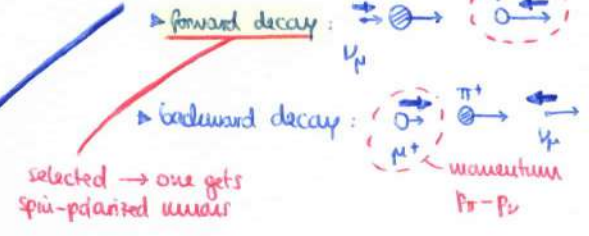 ▸ forward decay :
νμ
▸ backward decay :
π+
νμ
μ+
momentum
pπ - pν
selected → one gets
spin-polarized muons